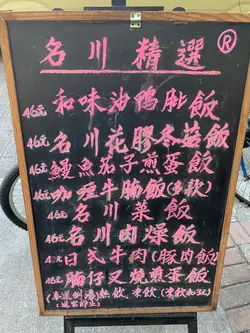 名川精選®
46元 和味油鴨髀飯
46元 名川花膠冬菇飯
46元 鰻魚茄子煎蛋飯
46元 咖喱牛腩飯(多款)
46元 名川菜飯
46元 名川肉燥飯
42元 日式牛肉(豚肉飯)
46元 腩仔叉燒煎蛋飯
熱飲,凍飲(凍飲加3元)